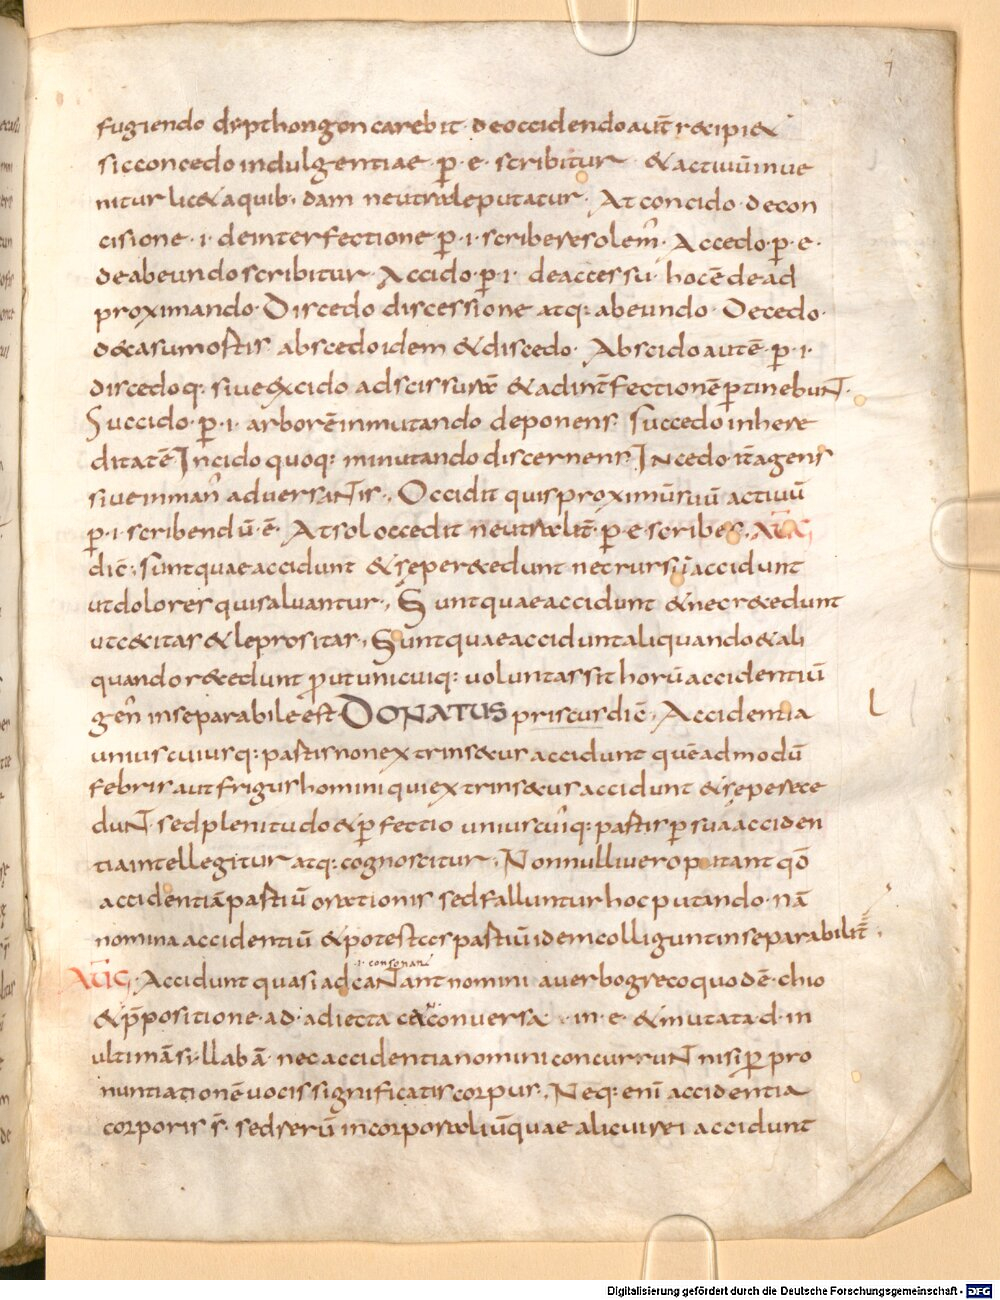 7
fugiendo dypthongon carebit· deoccidendo aut̄ recipi&
sic concedo indulgentiae· p̱· e· scribitur· & actiuū inue
nitur lic& a quib· dam neutrale putatur· At concido· de con
cisione· i· de interfectione p̱· i· scribere solem̄· Accedo· p̱· e·
de abeundo scribitur· Accido· p̱· i· de accessu· hoc ē de ad
proximando· Discedo discessione atq: abeundo· Decedo·
d& casum ostis abscedo idem & discedo· Abscido autē· p̱· i·
discedo q· siue excido ad scissurā & ad int̄fectionē p̱tinebuNT·
Succido· p̱· i· arborē inmutando deponens· Succedo in here
ditatē Incido quoq: minutando discernens· Incedo· it̄ agens
siue in man̄ aduersaNTis· Occidit quis proximū suū actiuū
p̱· i· scribendū· ē· At sol occedit neutralit̄· p̱· e· scribes· AUG
dic̄· sunt quae accidunt & sepe recedunt nec rursū accidunt
ut dolores qui saluantur· Sunt quae accidunt & nec recedunt
ut c&citas & leprositas· Sunt quae accidunt aliquando & ali
quando recedunt ꝓut unicuiq: uoluntas sit horū accidentiū
gen̄ inseparabile est DONATUS priscus dic̄· Accidentia
unius cuiusq: partis non extrinsecus accidunt quē admodū
febris aut frigus homini qui extrinsecus accidunt & sepe rece
duNT· sed plenitudo & p̱fectio unius cuiq: partis p̱ sua acciden
tia intellegitur atq: cognoscitur· Nonnulli uero putant qō
accidentiā partiū orationis sed falluntur hoc putando· nā
nomina accidentiū & potestates partiū idem colligunt inseparabilit̄·
·i· consonant
AUG· Accidunt quasi adcaNTant nomini a uerbo greco quod ē· chio
& p̄positione· ad· adiecta c& a conuersa· in· e· & mutata· d· in
ultimā sillabā· nec accidentia nomini concurruNT nisi p̱ pro
nuntiationē uocis significatis corpus· Neq: enī accidentia
corporis s̄· sed rerū incorporaliū quae alicui rei accidunt
Digitalisierung gefördert durch die Deutsche Forschungsgemeinschaft - DFG